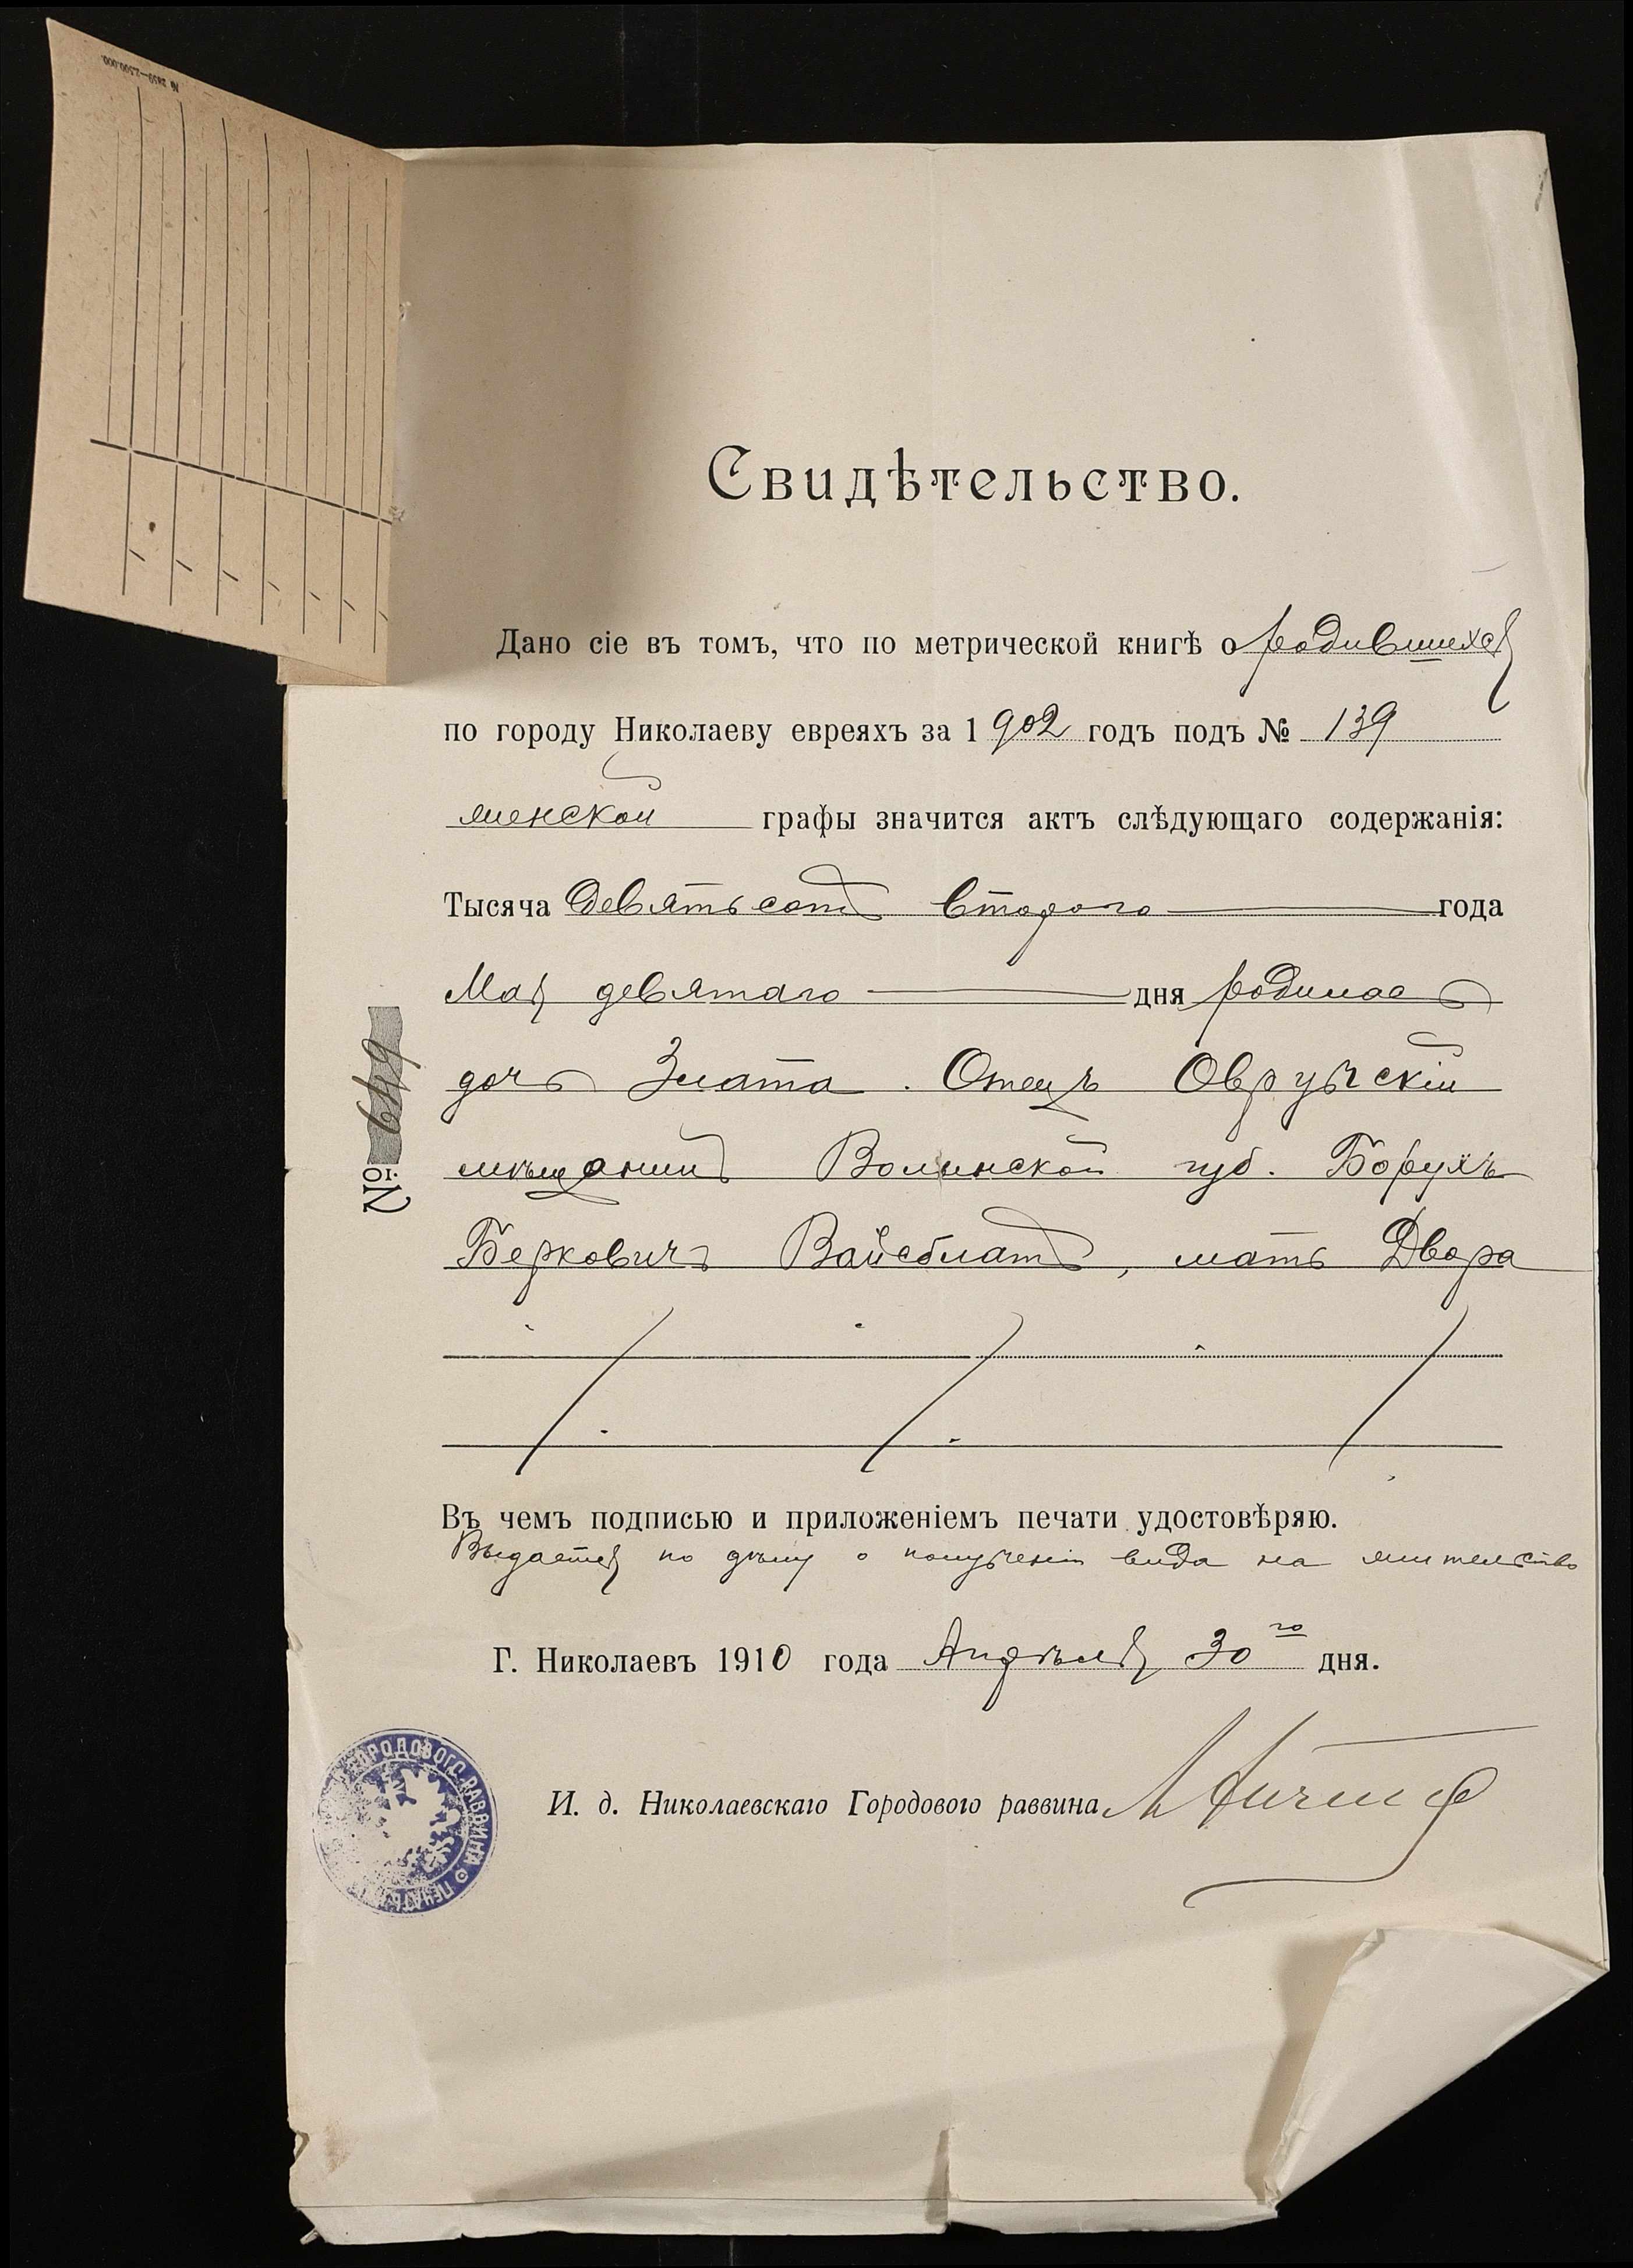 № 2859—2.500.000.
Свидѣтельство.
Дано сіе въ томъ, что по метрической книгѣ о родившихся
по городу Николаеву евреяхъ за 1902 годъ подъ № 139
женской графы значится актъ слѣдующаго содержанія:
Тысяча девятьсотъ второго года
Мая девятаго дня родилась
дочь Злата. Отецъ Овручскій
мѣщанинъ Волынской губ. Борухъ
Берковичъ Вайсблатъ, мать Двора
№ 649
Въ чемъ подписью и приложеніемъ печати удостовѣряю.
Выдается по дѣлу о полученіи вида на жительство
Г. Николаевъ 1910 года Апрѣля 30го дня.
И. д. Николаевскаго Городового раввина
ГОРОДОВОГО РАВВИНА ПЕЧАТЬ